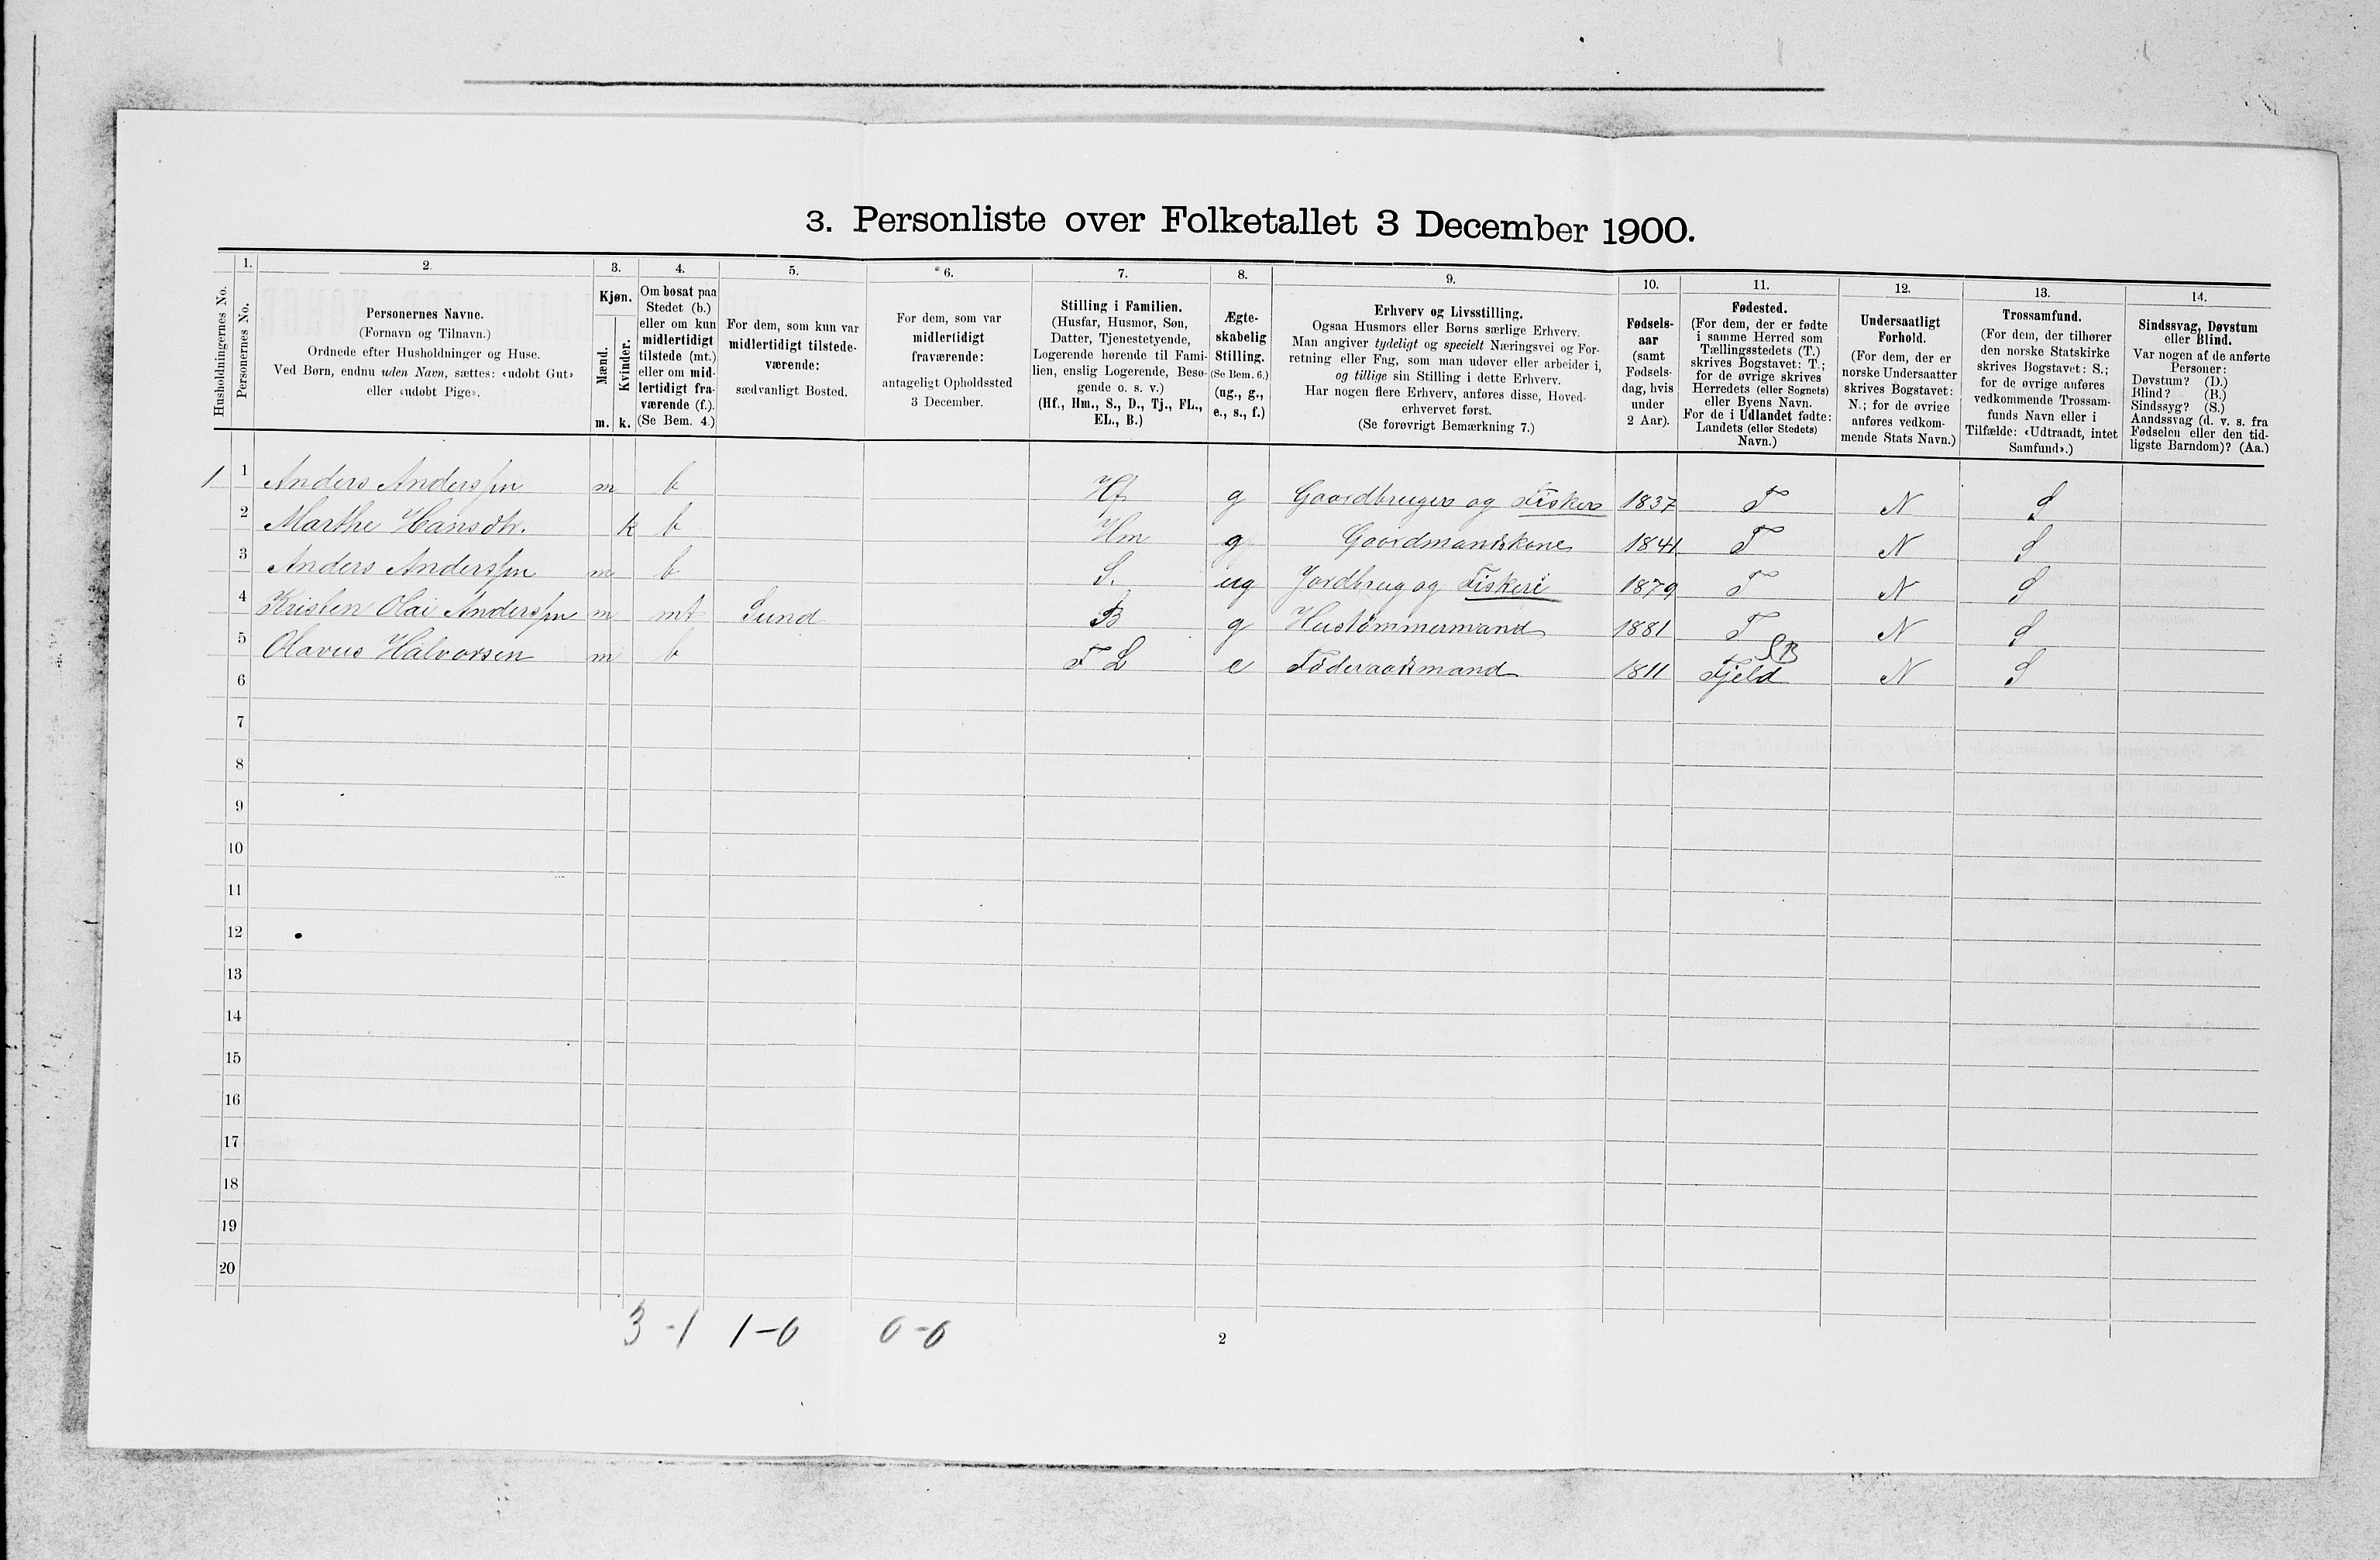 3. Personliste over Folketallet 3 December 1900.
Husholdningernes No.
1.
Personernes No.
2.
Personernes Navne.
(Fornavn og Tilnavn.)
Ordnede efter Husholdninger og Huse.
Ved Børn, endnu uden Navn, sættes: «udøbt Gut»
eller «udøbt Pige».
3.
Kjøn.
Mænd.
Kvinder.
m. k.
4.
Om bosat paa
Stedet (b.)
eller om kun
midlertidigt
tilstede (mt.)
eller om mid-
lertidigt fra-
værende (f.).
(Se Bem. 4.)
5.
For dem, som kun var
midlertidigt tilstede-
værende:
sædvanligt Bosted.
6.
For dem, som var
midlertidigt
fraværende:
antageligt Opholdssted
3 December.
7.
Stilling i Familien.
(Husfar, Husmor, Søn,
Datter, Tjenestetyende,
Logerende hørende til Fami-
lien, enslig Logerende, Besø-
gende o. s. v.)
(Hf., Hm., S., D., Tj., FL.,
EL., B.)
8.
Ægte-
skabelig
Stilling.
(Se Bem. 6.)
(ug., g.,
e., s., f.)
9.
Erhverv og Livsstilling.
Ogsaa Husmors eller Børns særlige Erhverv.
Man angiver tydeligt og specielt Næringsvei og For-
retning eller Fag, som man udøver eller arbeider i,
og tillige sin Stilling i dette Erhverv.
Har nogen flere Erhverv, anføres disse, Hoved-
erhvervet først.
(Se forøvrigt Bemærkning 7.)
10.
Fødsels-
aar
(samt
Fødsels-
dag, hvis
under
2 Aar).
11.
Fødested.
(For dem, der er fødte
i samme Herred som
Tællingsstedets (T.)
skrives Bogstavet: T.;
for de øvrige skrives
Herredets (eller Sognets)
eller Byens Navn.
For de i Udlandet fødte:
Landets (eller Stedets)
Navn.)
12.
Undersaatligt
Forhold.
(For dem, der er
norske Undersaatter
skrives Bogstavet:
N.; for de øvrige
anføres vedkom-
mende Stats Navn.)
13.
Trossamfund.
(For dem, der tilhører
den norske Statskirke
skrives Bogstavet: S.;
for de øvrige anføres
vedkommende Trossam-
funds Navn eller i
Tilfælde: «Udtraadt, intet
Samfund».)
14.
Sindssvag, Døvstum
eller Blind.
Var nogen af de anførte
Personer:
Døvstum? (D.)
Blind? (B.)
Sindssyg? (S.)
Aandssvag (d. v. s. fra
Fødselen eller den tid-
ligste Barndom)? (Aa.)
1 1 Anders Anderssen m b Hf g Gaardbruger og Fisker 1837 T N S
2 Marthe Hansdtr. k b Hm g Gaardmandskone 1841 T N S
3 Anders Anderssen m b S. ug Jordbrug og Fiskeri 1879 T N S
4 Kristen Olai Anderssen m mt Sund B g Hustømmermand 1881 T N S
5 Olavus Halvorsen m b FL e Føderaadsmand 1811 Fjeld SB N S
6
7
8
9
10
11
12
13
14
15
16
17
18
19
20
3-1 1-0 0-0
2